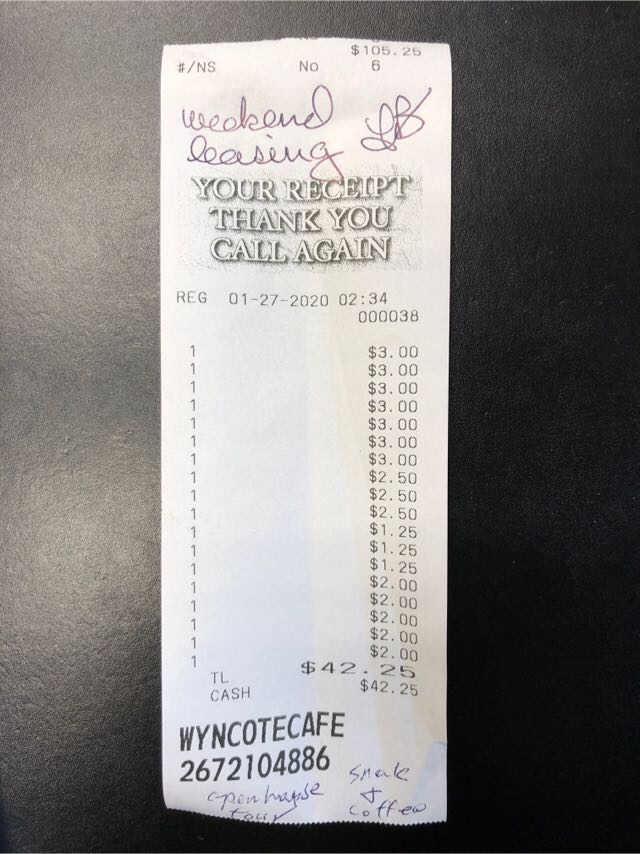 $105.25
#/NS No 6
weekend LB
leasing
YOUR RECEIPT
THANK YOU
CALL AGAIN
REG 01-27-2020 02:34
000038
1 $3.00
1 $3.00
1 $3.00
1 $3.00
1 $3.00
1 $3.00
1 $3.00
1 $2.50
1 $2.50
1 $2.50
1 $1.25
1 $1.25
1 $1.25
1 $2.00
1 $2.00
1 $2.00
1 $2.00
1 $2.00
TL $42.25
CASH $42.25
WYNCOTECAFE
2672104886
open house
tour
+
coffee